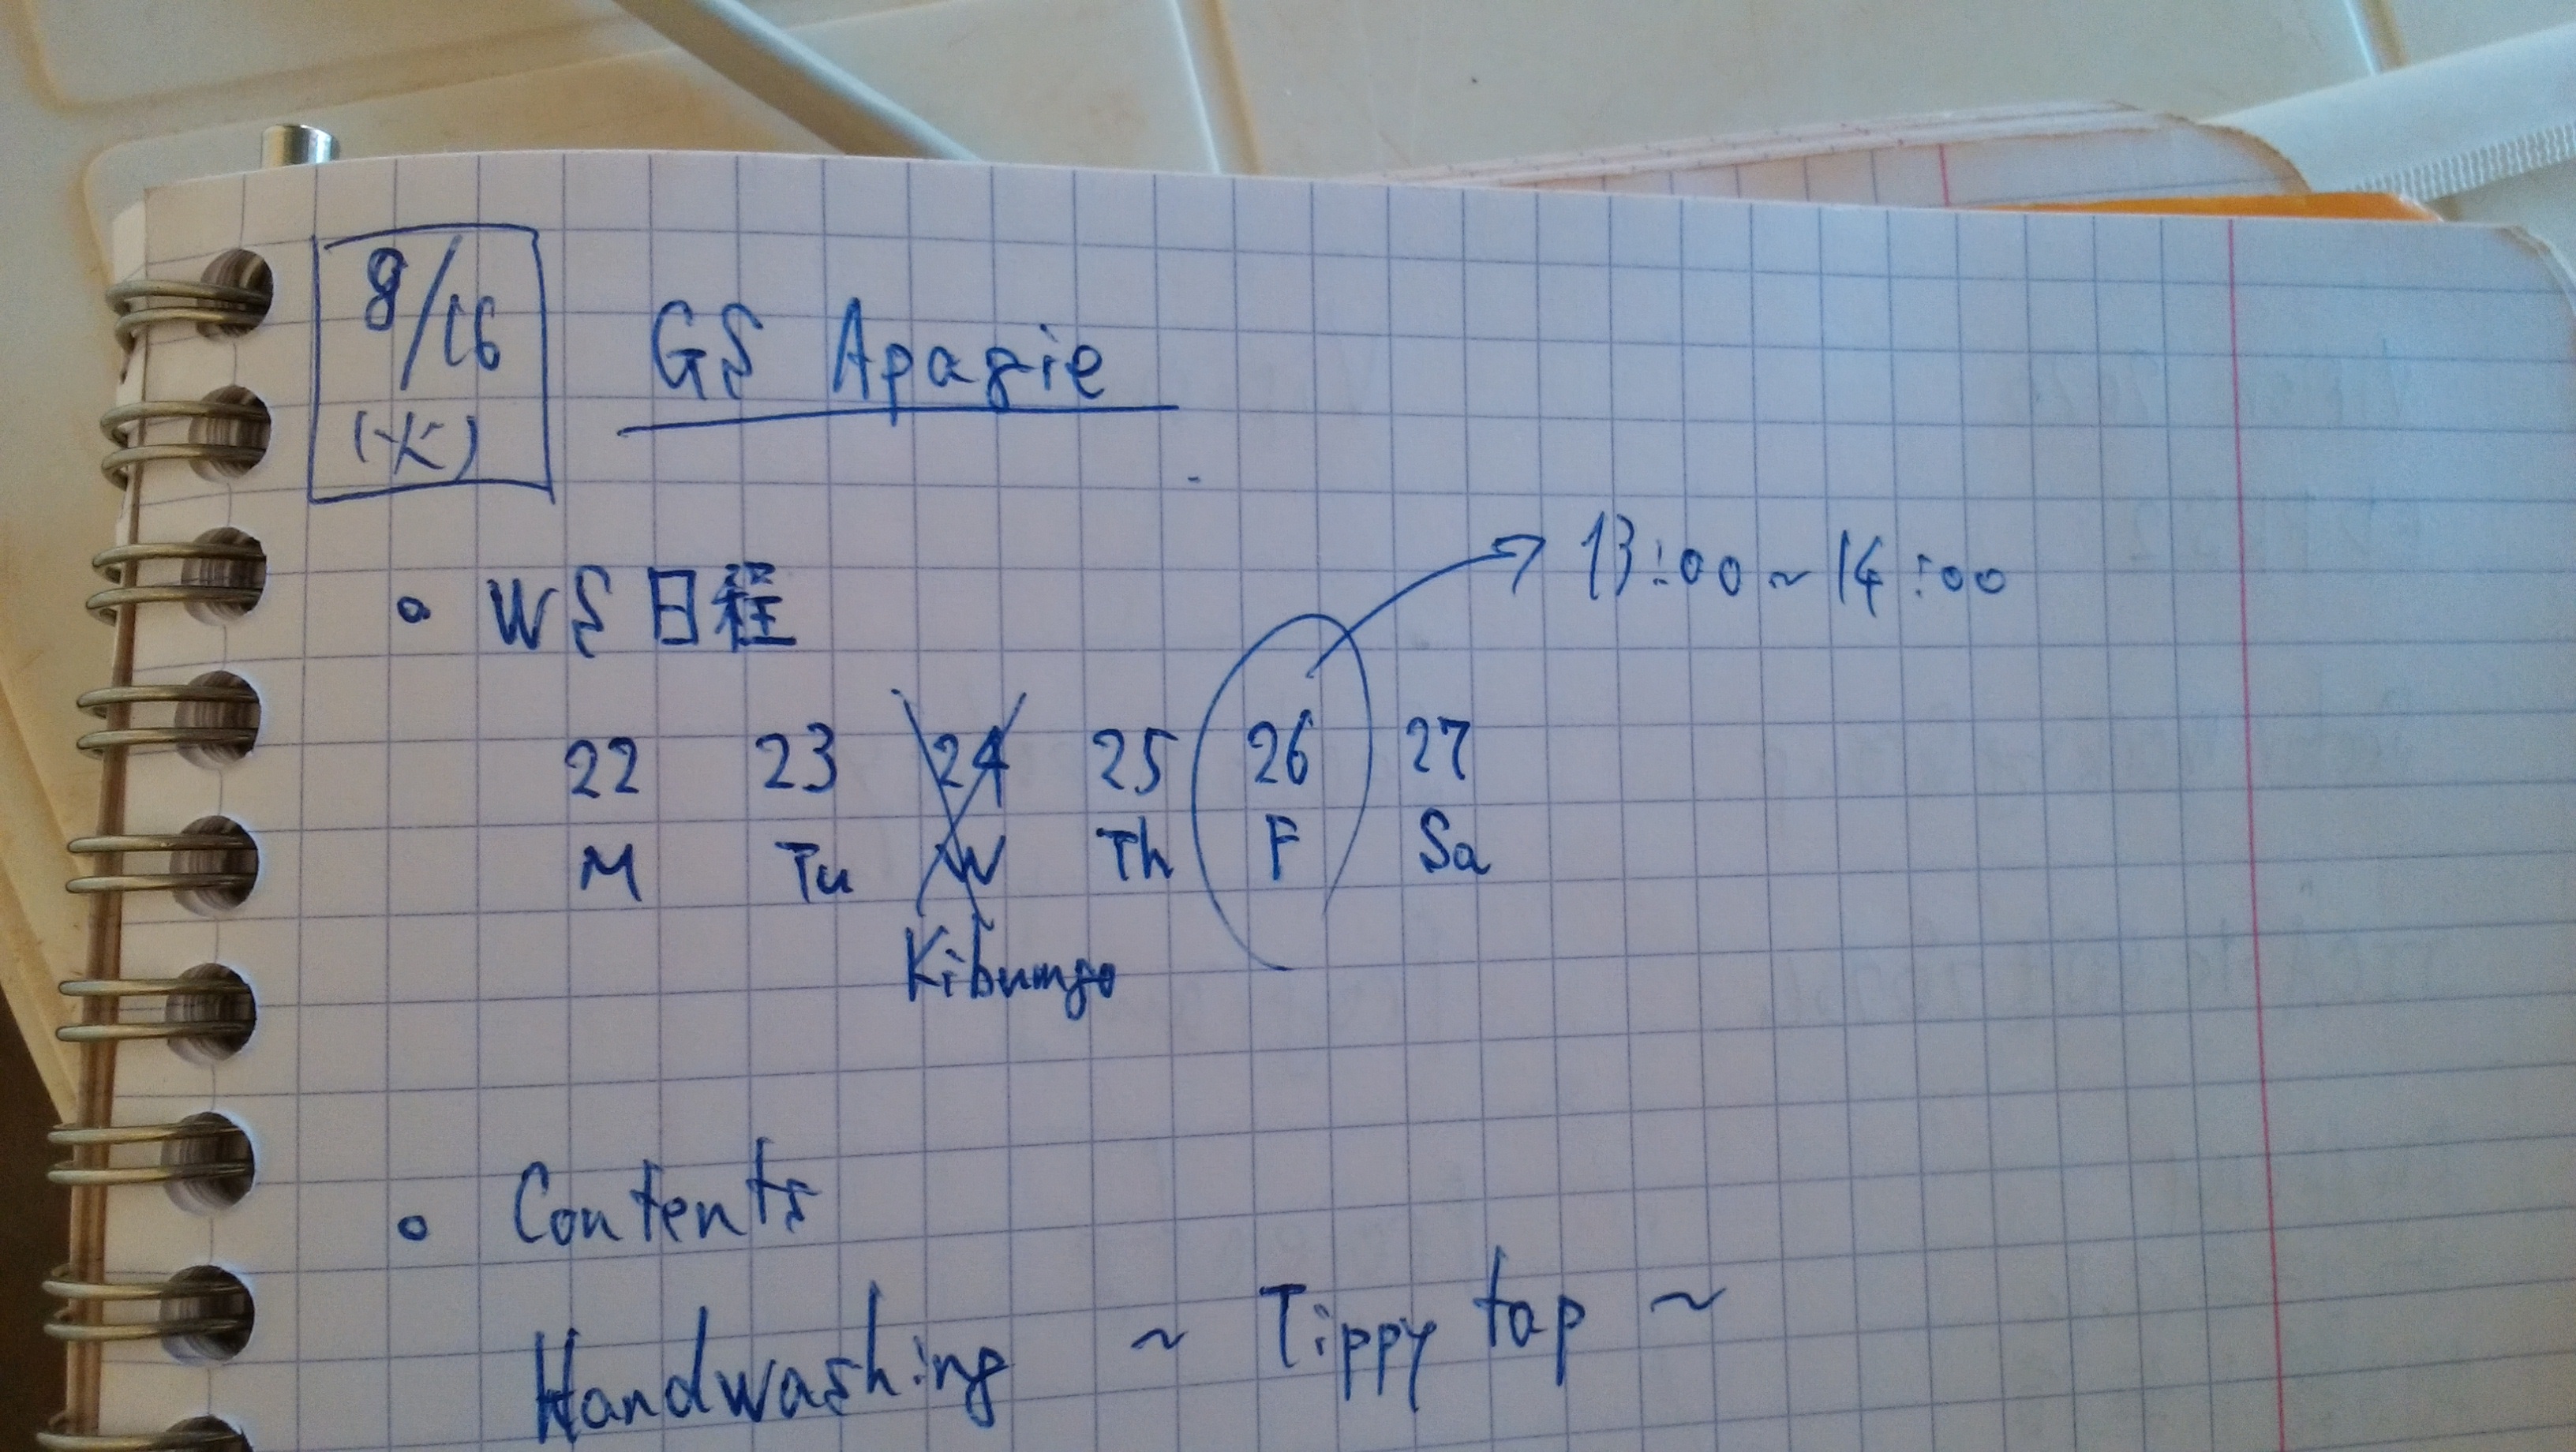 8/16
(火)
GS Apagie
• WS日程
13:00~14:00
22 23 24 25 26 27
M Tu W Th F Sa
Kibungo
• Contents
Handwashing ~ Tippy tap ~